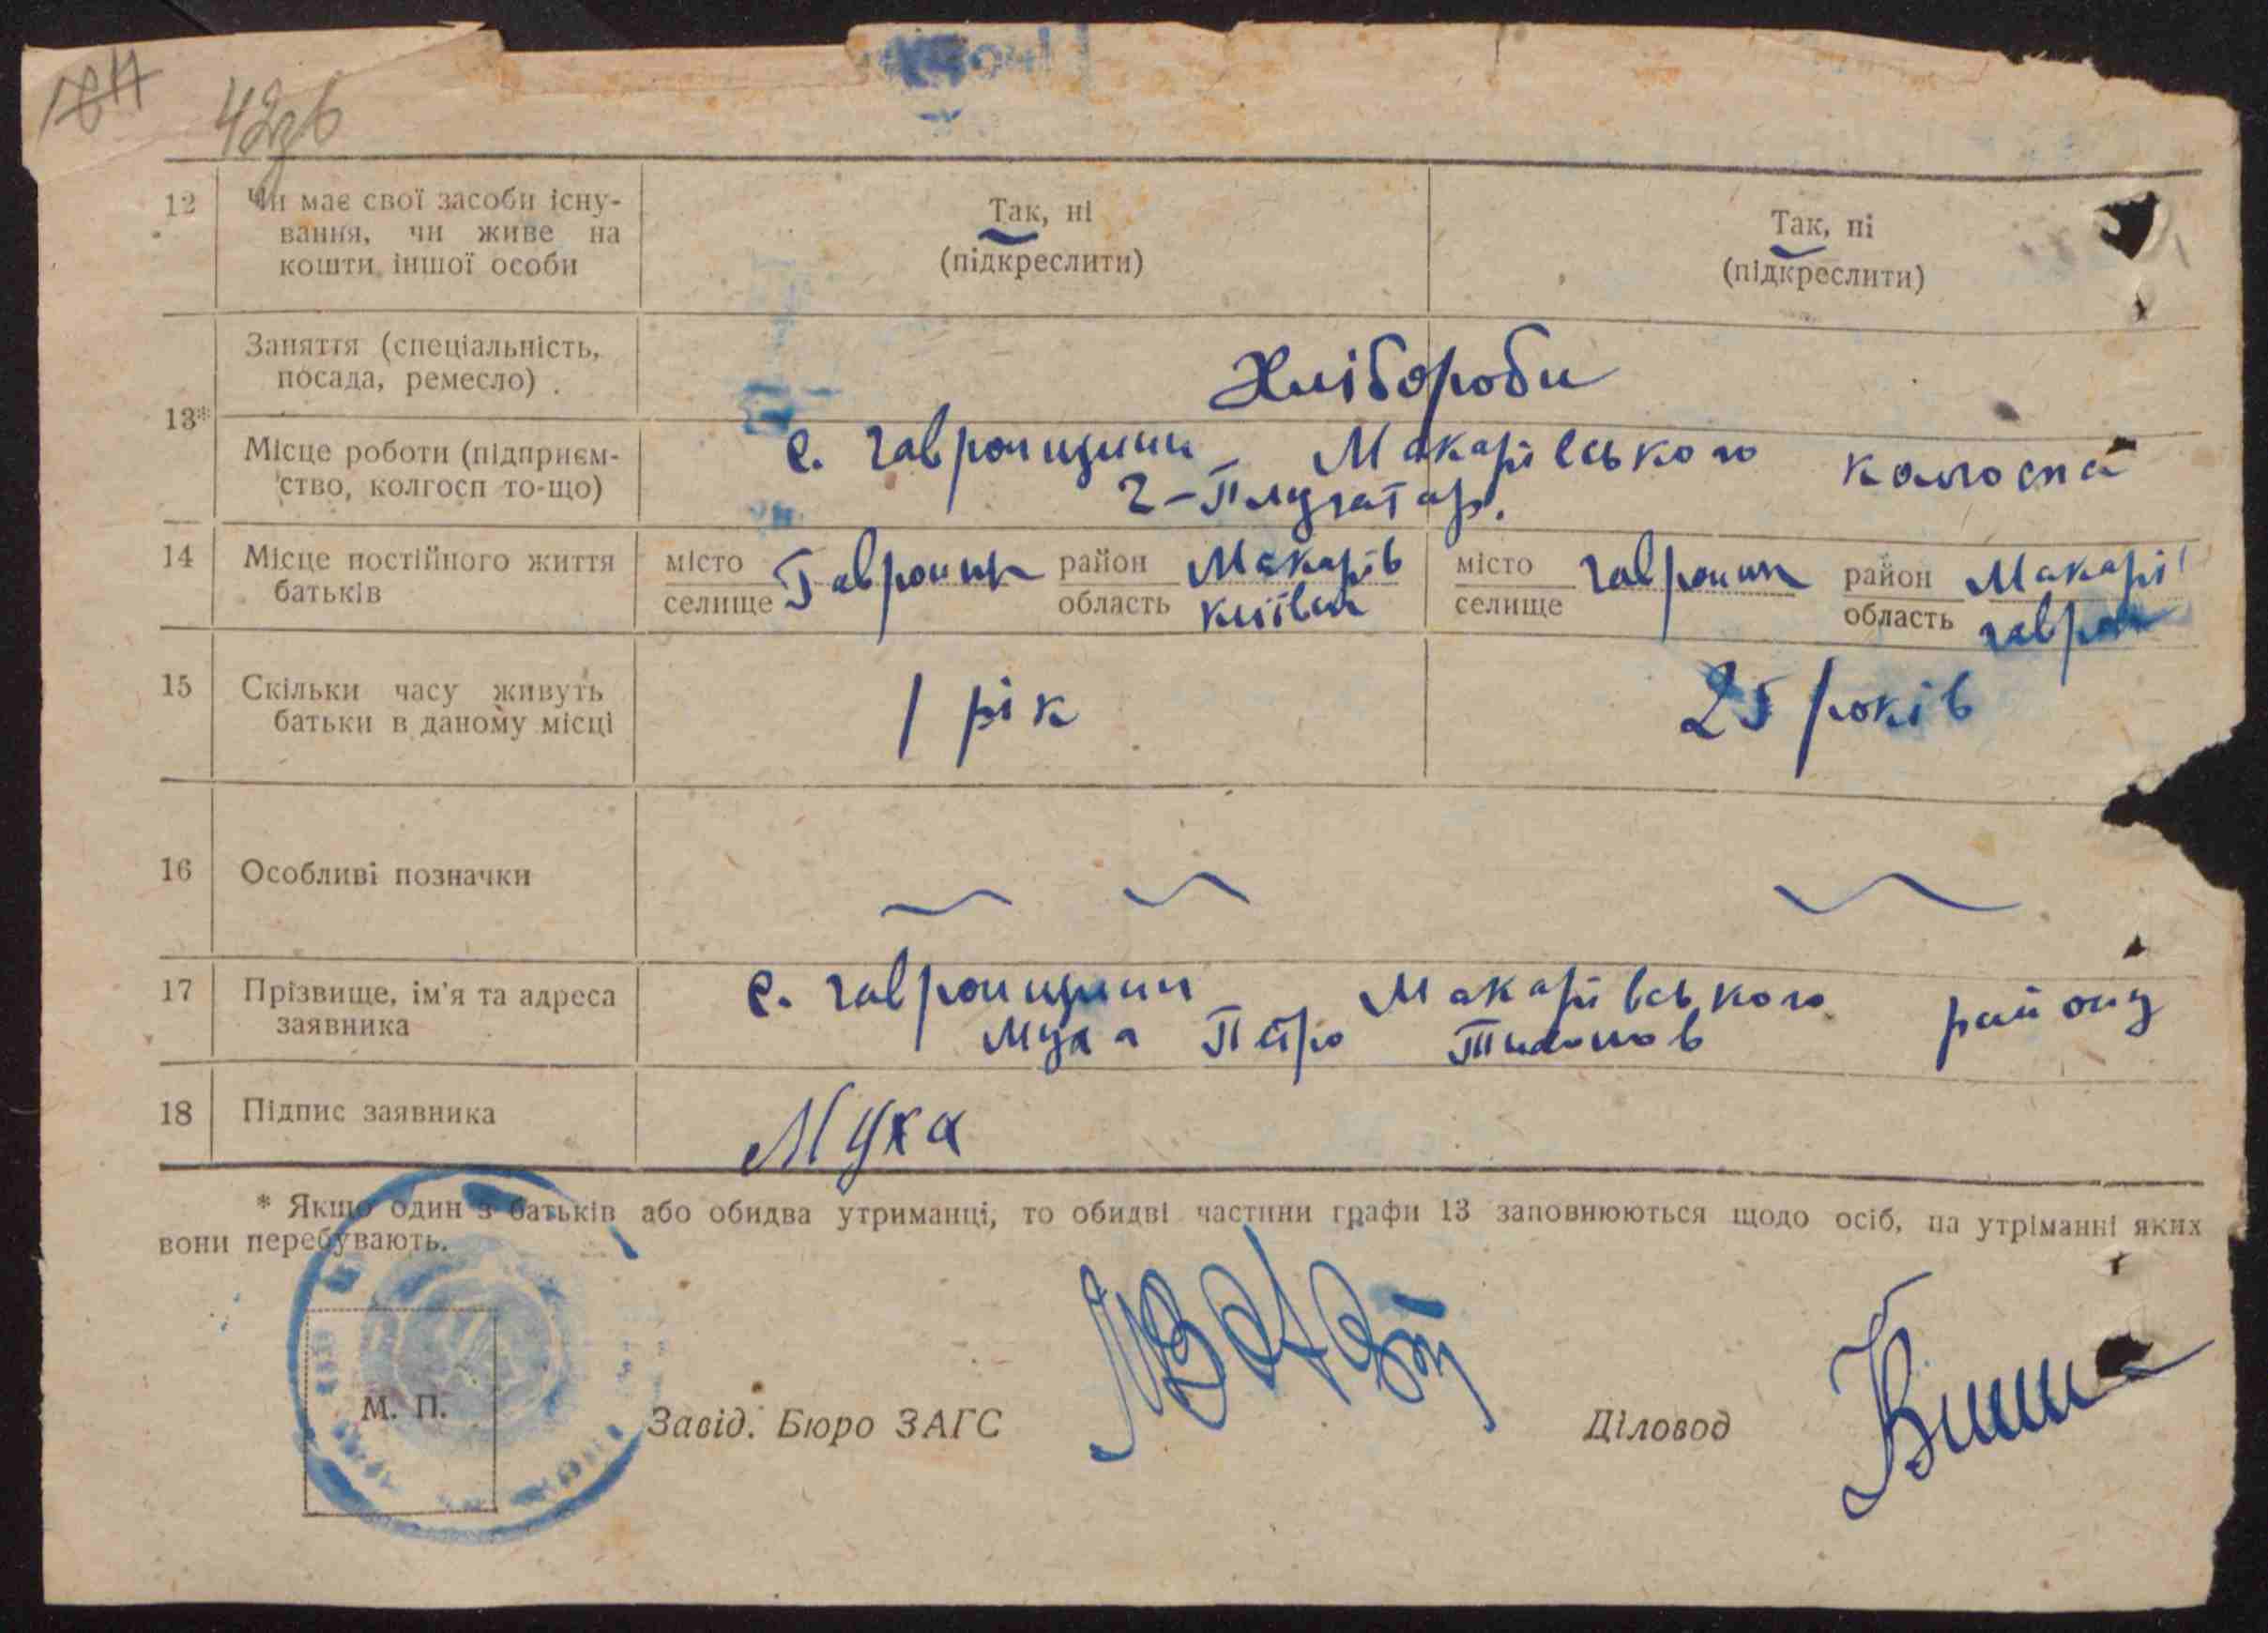 42зв
12 Чи має свої засоби існу-
вання, чи живе на
кошти іншої особи
Так, ні
(підкреслити)
Так, ні
(підкреслити)
13*
Заняття (спеціальність,
посада, ремесло) .
Хлібороби
Місце роботи (підприєм-
ство, колгосп то-що)
с. Гавронщини Макарівського колгоспа
2-Плугатар.
14 Місце постійного життя
батьків
місто
селище
Гавронщ
район
область
Макарів
Київськ
місто
селище
Гавронщ
район
область
Макарі
гаврон
15 Скільки часу живуть
батьки в даному місці
1 рік
25 років
16 Особливі позначки
17 Прізвище, ім'я та адреса
заявника
с. Гавронщини Макарівського району
Муха Петро Тихонов
18 Підпис заявника
Муха
* Якщо один з батьків або обидва утриманці, то обидві частини графи 13 заповнюються щодо осіб, на утріманні яких
вони перебувають.
М. П.
Завід. Бюро ЗАГС
Діловод